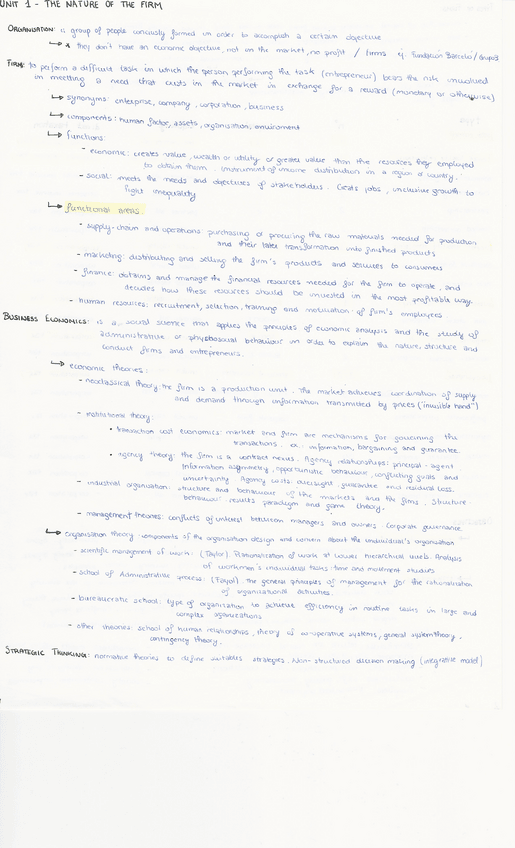 UNIT 1 - THE NATURE OF THE FIRM
ORGANISATION: is group of people conciously formed in order to accomplish a certain objective
↳ * they don't have an economic objective, not in the market, no profit / firms
FIRM: to perform a difficult task in which the person performing the task (entrepreneur) bears the risk involved
in meeting a need that exists in the market in exchange for a reward (monetary or otherwise)
↳ synonyms: enterprise, company, corporation, business
↳ components: human factor, assets, organisation, enviroment
↳ functions:
- economic: creates value, wealth or utility of greater value than the resources they employed
to obtain them. Instrument of income distribution in a region or country.
- social: meets the needs and objectives of stakeholders. Creats jobs, inclusive growth to
fight inequality
↳ functional areas
- supply-chain and operations: purchasing or procuring the raw materials needed for production
and their later transformation into finished products
- marketing: distributing and selling the firm's products and services to consumers
- finance: obtains and manage the financial resources needed for the firm to operate, and
decides how these resources should be invested in the most profitable way.
- human resources: recruitment, selection, training and motivation of firm's employees
BUSINESS ECONOMICS: is a social science that applies the principles of economic analysis and the study of
administrative or behaviour in order to explain the nature, structure and
conduct firms and entrepreneurs.
↳ economic theories:
- neoclassical theory: the firm is a production unit. The market achieves coordination of supply
and demand through information transmitted by prices ("invisible hand")
- institutional theory:
• transaction cost economics: market and firm are mechanisms for governing the
transactions. ex. information, bargaining and guarantee.
• agency theory: the firm is a contract nexus. Agency relationships: principal - agent
Information asymmetry, opportunistic behaviour, conflicting goals and
uncertainty. Agency costs: oversight guarantee and residual loss.
- industrial organisation: structure and behaviour of the markets and the firms. Structure-
behaviour- results paradigm and game theory.
- management theories: conflicts of interest between managers and owners. Corporate governance.
↳ organisation theory: components of the organisation design and concern about the individual's organisation
- scientific management of work: (Taylor). of work at lower hierarchical levels. Analysis
of workmen's individual tasks: time and studies
- school of Administrative process: (Fayol). the general principles of management for the rationalisation
of organisational activities.
- bureaucratic school: type of organisation to achieve efficiency in routine tasks in large and
complex organizations
- other theories: school of human relationships, theory of co-operative systems, general system theory,
contingency theory.
STRATEGIC THINKING: normative theories to define suitables strategies. Non-structured decision making (integrative model)